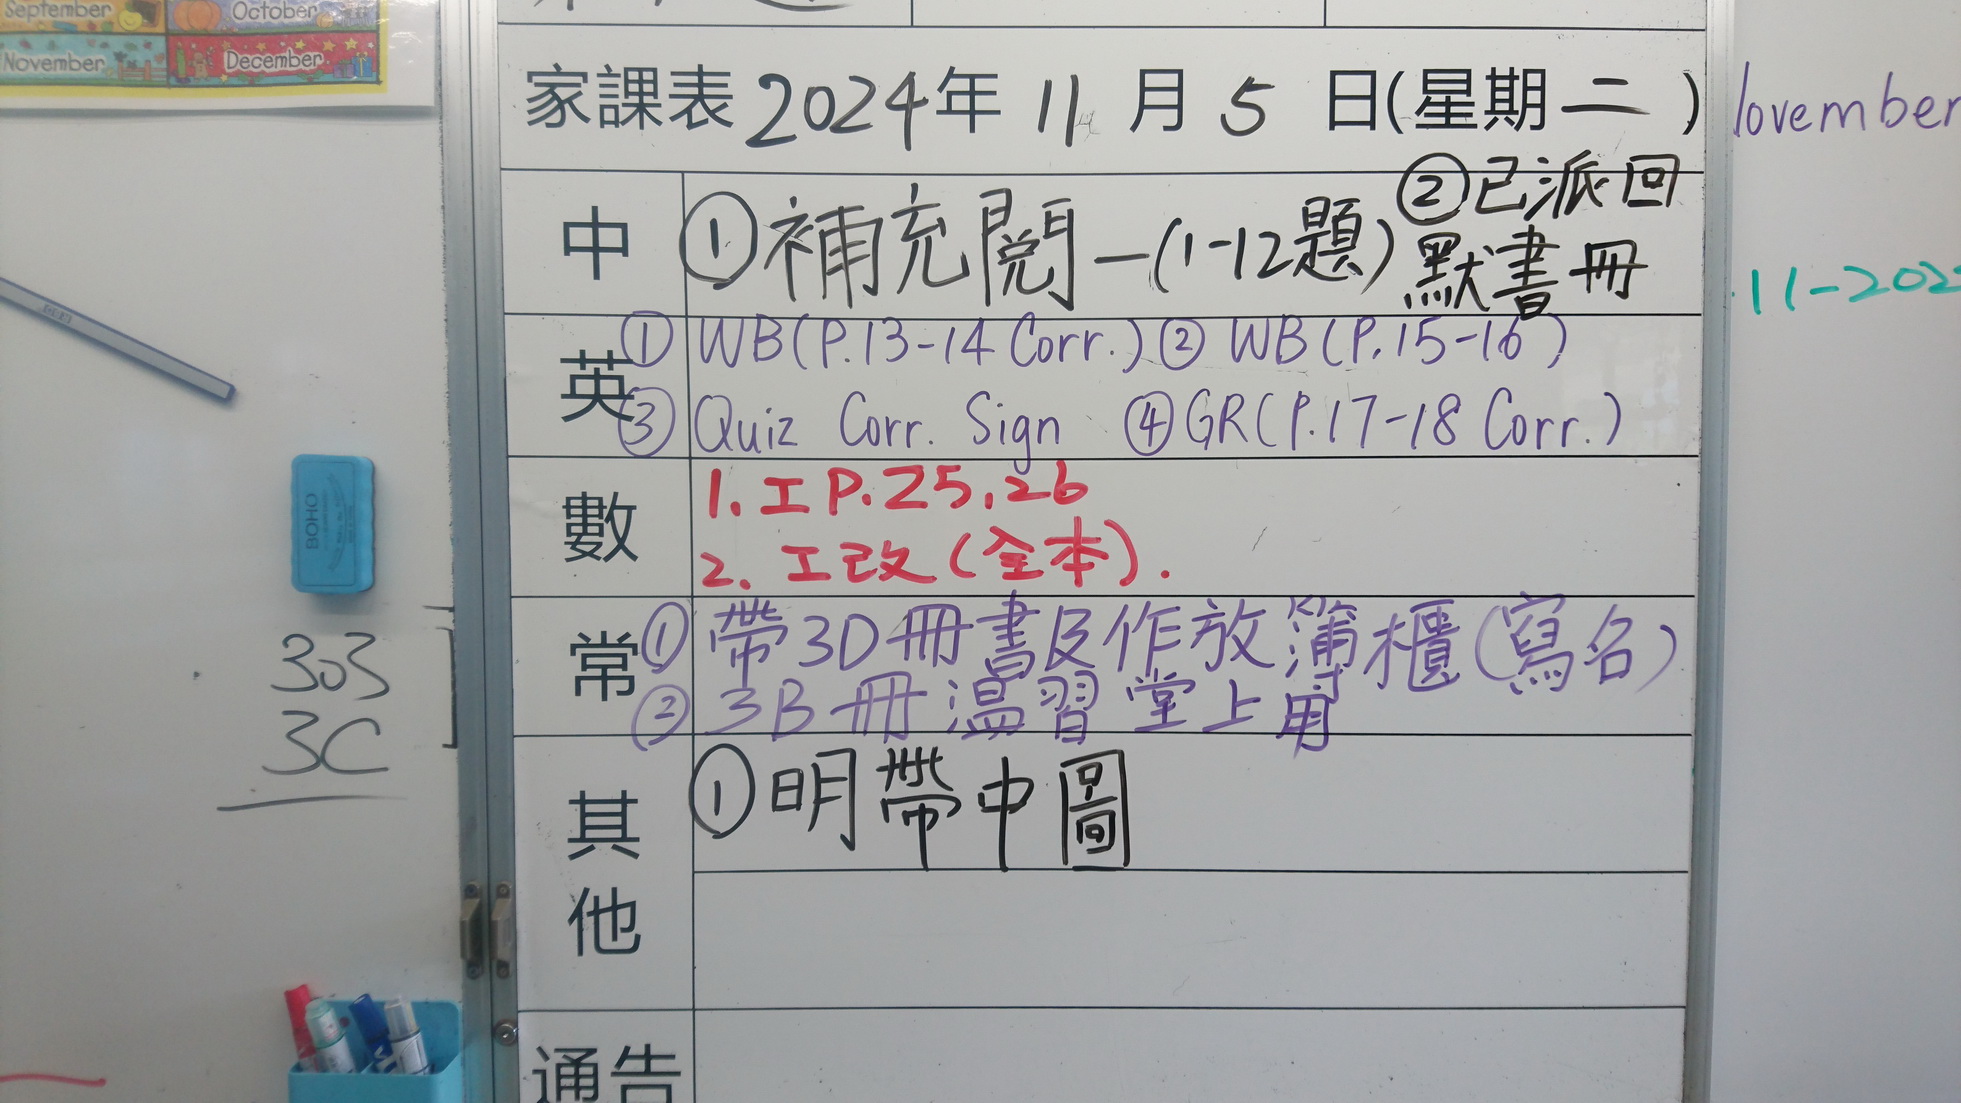 September
October
November
December
家課表 2024年 11 月 5 日(星期二)
中
① 補充閱一(1-12題)
② 已派回
默書冊
英
① WB(P.13-14 Corr.) ② WB(P.15-16)
③ Quiz Corr. Sign ④ GR(P.17-18 Corr.)
數
1. 工 P.25,26
2. 工改(全本).
常
① 帶3D冊書及作放簿櫃(寫名)
② 3B冊溫習堂上用
其他
① 明帶中圖
通告
BOHO
303
3C
ovember
11-202